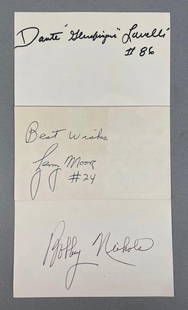 Dante "Gluefingers" Lavelli
#86
Best Wishes
Lenny Moore
#24
Bobby Nichols